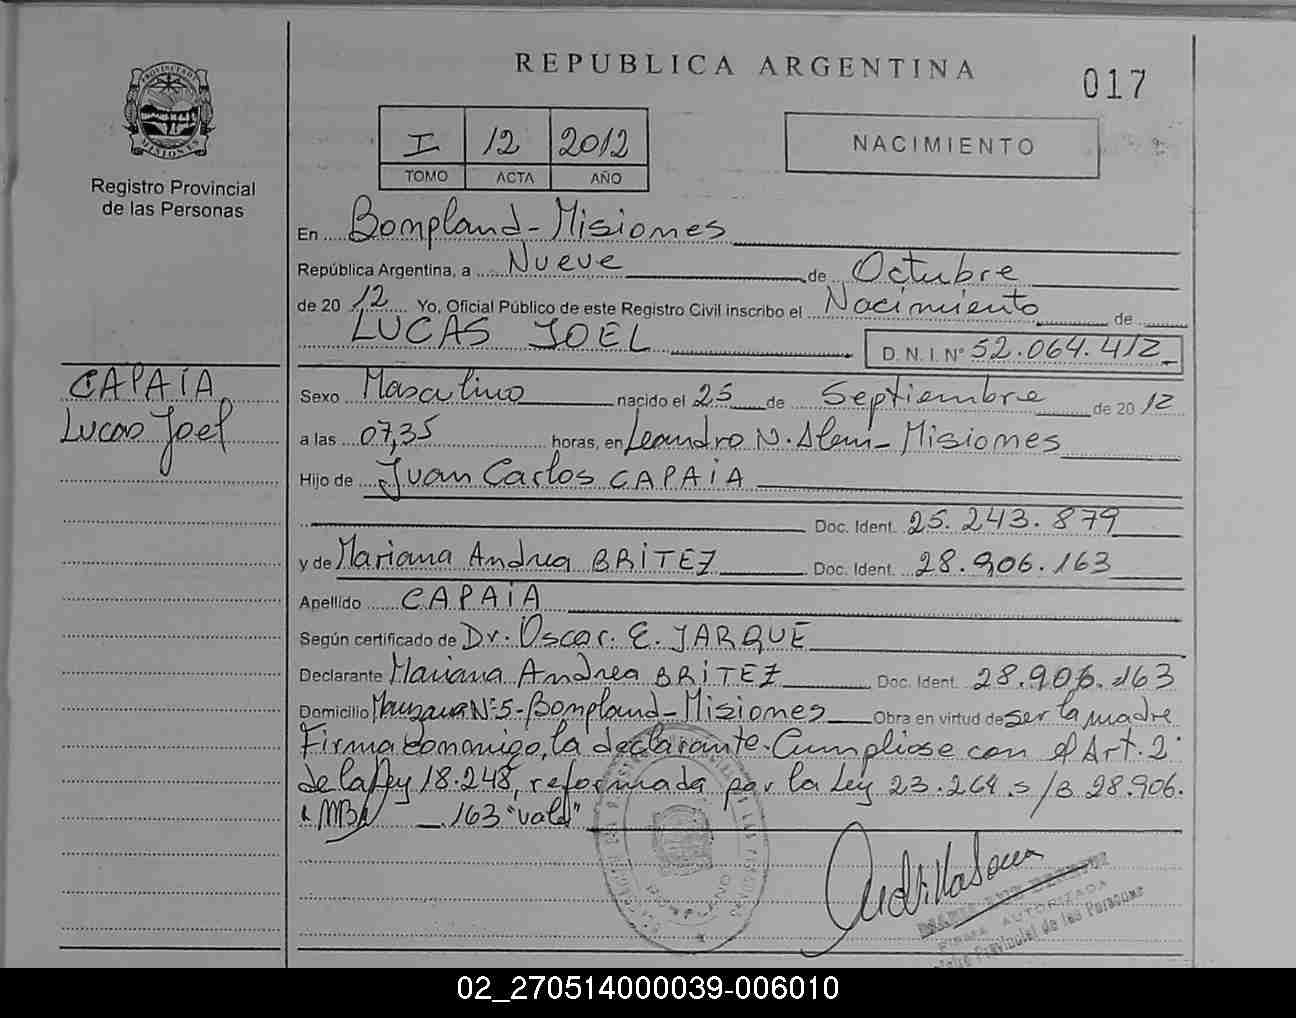 REPUBLICA ARGENTINA
017
PROVINCIA DE MISIONES
Registro Provincial
de las Personas
I 12 2012
TOMO ACTA AÑO
NACIMIENTO
En Bompland - Misiones
República Argentina, a Nueve de Octubre
de 20 12 Yo, Oficial Público de este Registro Civil inscribo el Nacimiento de
LUCAS JOEL D.N.I. Nº 52.064.412
CAPAIA
Lucas Joel
Sexo Masculino nacido el 25 de Septiembre de 20 12
a las 07,35 horas, en Leandro N. Alem - Misiones
Hijo de Juan Carlos CAPAiA
Doc. Ident. 25.243.879
y de Mariana Andrea BRiTEZ Doc. Ident. 28.906.163
Apellido CAPAiA
Según certificado de Dr. Oscar. E. JARQUE
Declarante Mariana Andrea BRiTEZ Doc. Ident. 28.906.163
Domicilio Manzana Nº 5 - Bompland - Misiones Obra en virtud de ser la madre
Firma conmigo, la declarante. Cumpliose con el Art. 2º
de la Ley 18.248, reformada por la Ley 23.264. s/B 28.906.
163 "vale"
FIRMA AUTORIZADA
Provincial de las Personas
02_270514000039-006010